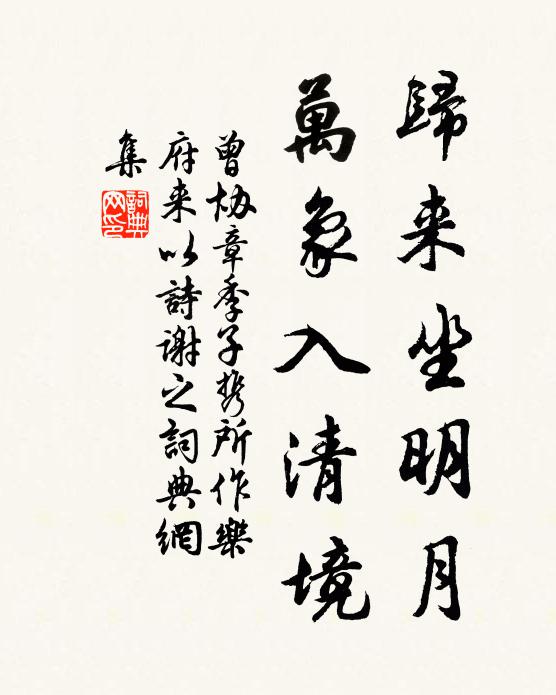 歸来坐明月
萬象入清境
曾协章季子携所作樂
府来以詩谢之詞典網
集
詞典
网印